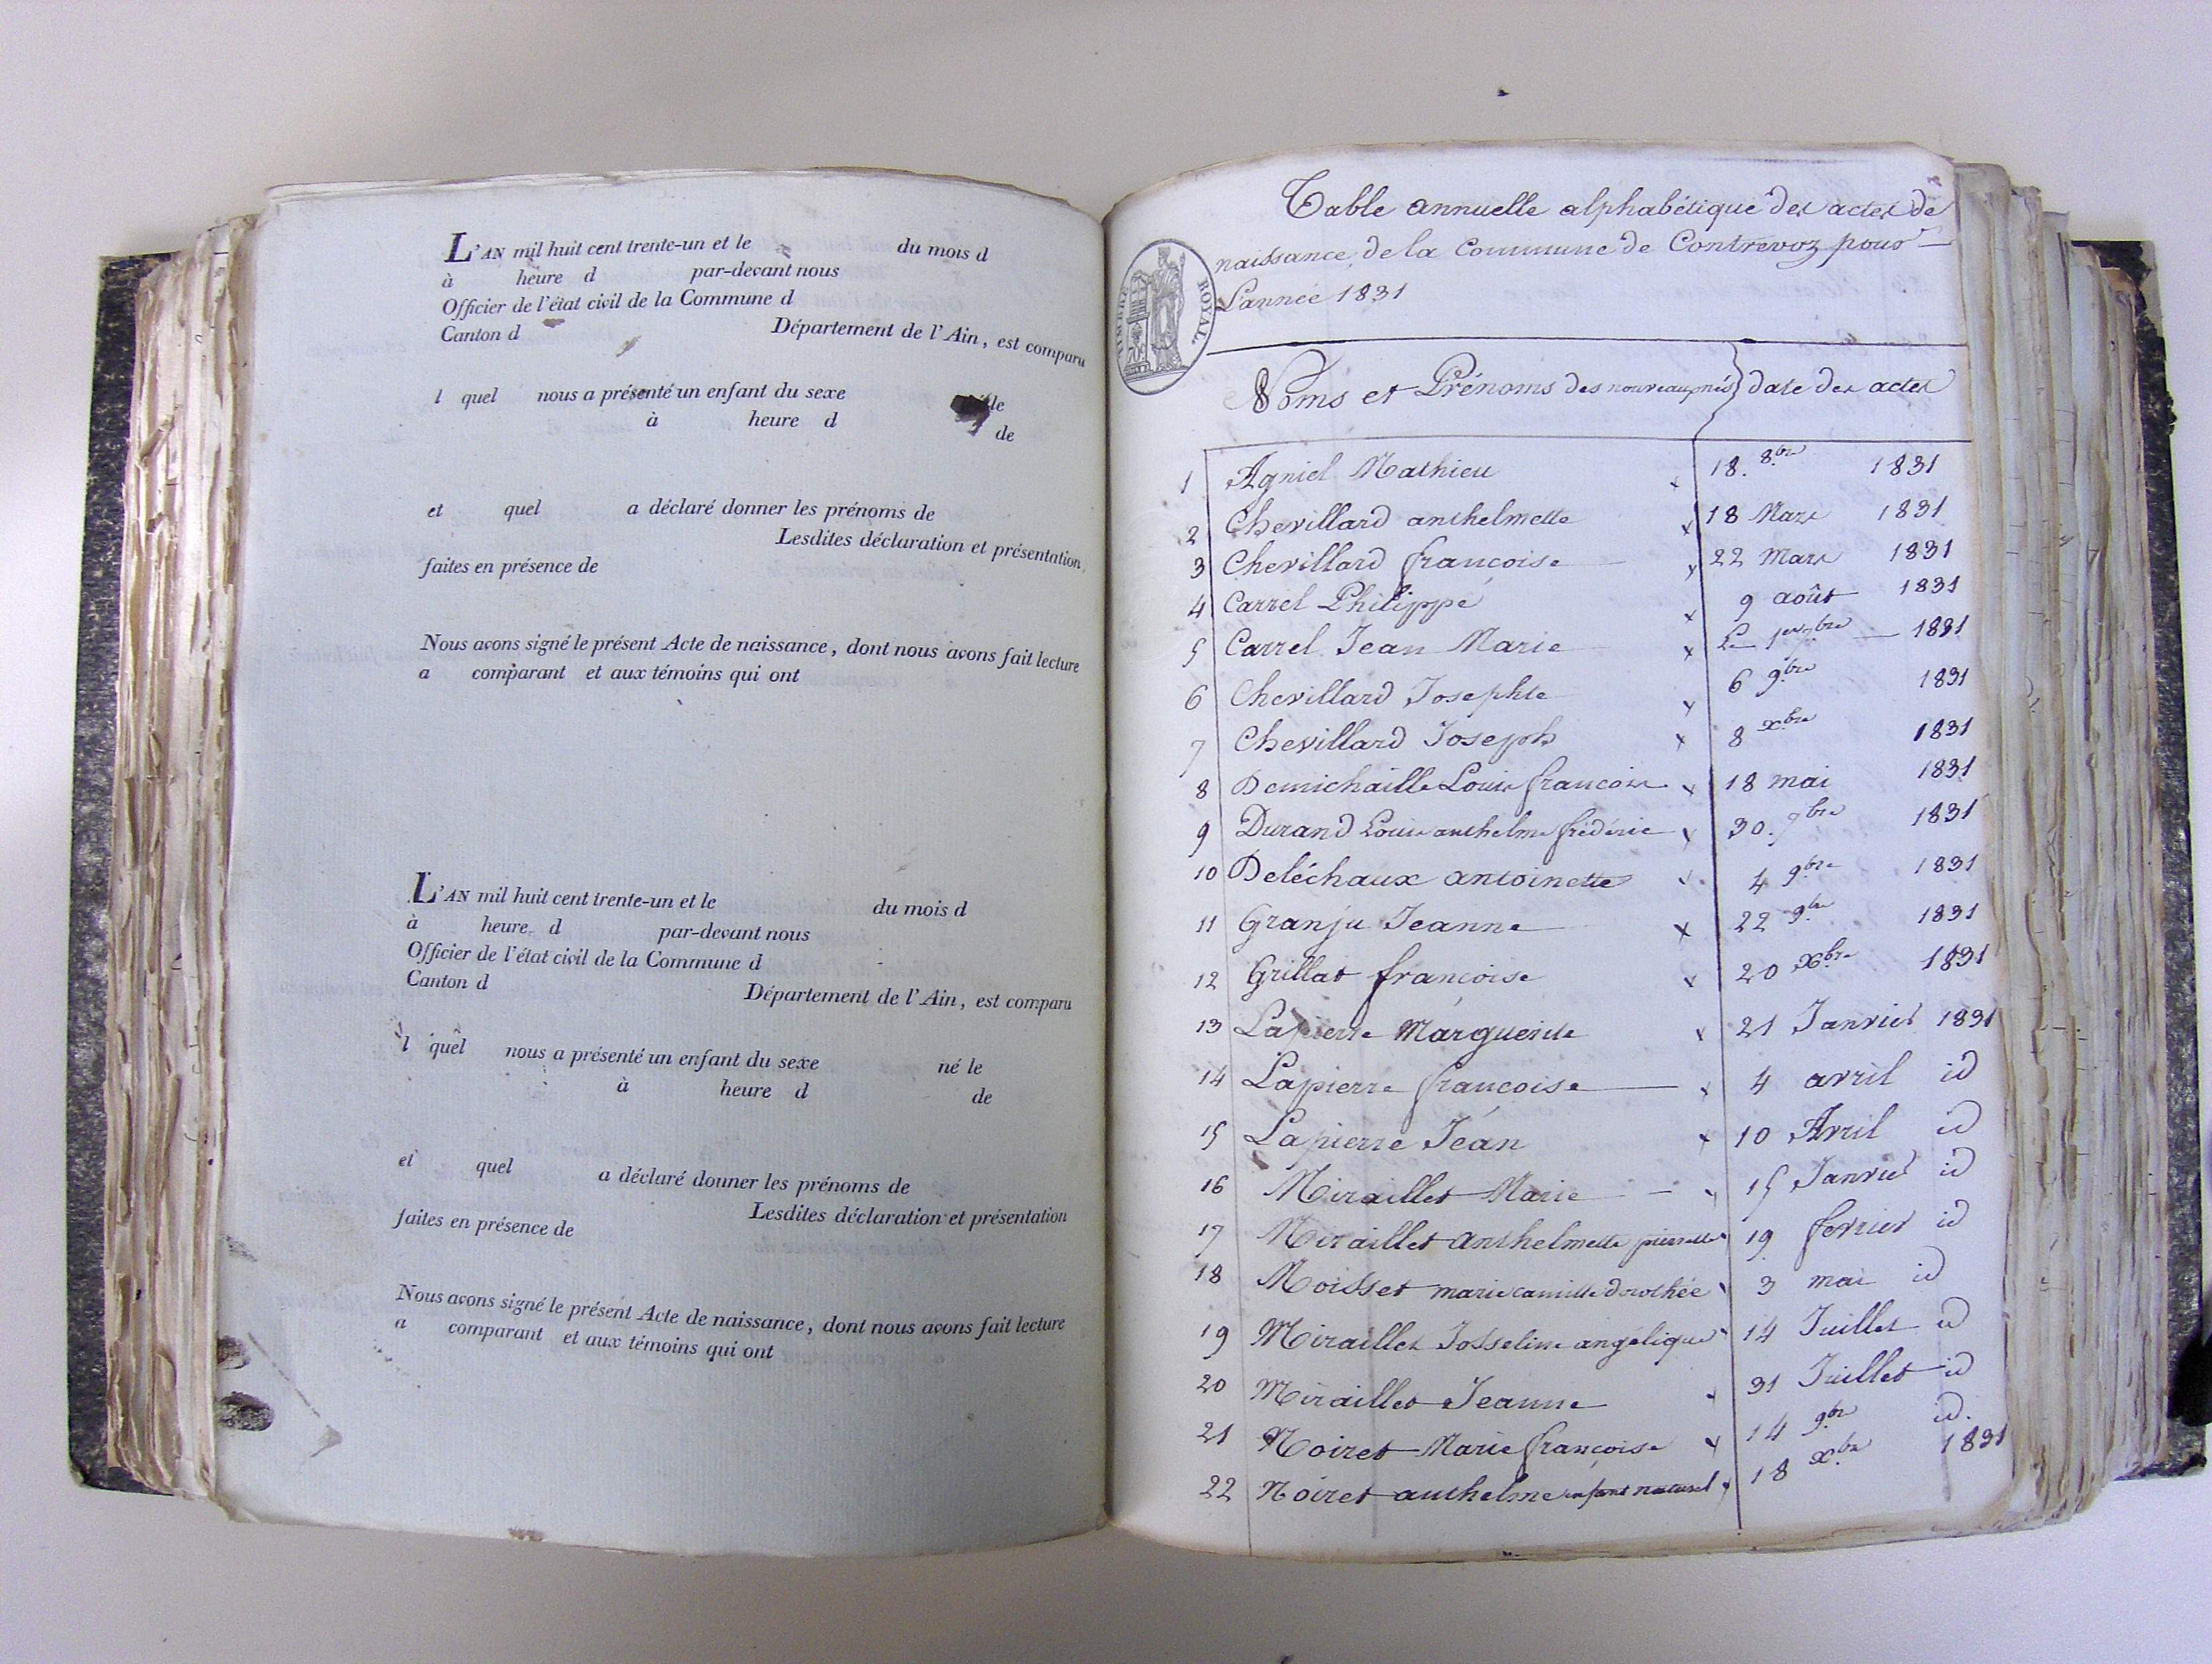 L'AN mil huit cent trente-un et le du mois d
à heure d par-devant nous
Officier de l'état civil de la Commune d
Canton d Département de l'Ain, est comparu
l quel nous a présenté un enfant du sexe le
à heure d de
et quel a déclaré donner les prénoms de
Lesdites déclaration et présentation
faites en présence de
Nous avons signé le présent Acte de naissance, dont nous avons fait lecture
a comparant et aux témoins qui ont
L'AN mil huit cent trente-un et le du mois d
à heure d par-devant nous
Officier de l'état civil de la Commune d
Canton d Département de l'Ain, est comparu
l quel nous a présenté un enfant du sexe né le
à heure d de
et quel a déclaré donner les prénoms de
Lesdites déclaration et présentation
faites en présence de
Nous avons signé le présent Acte de naissance, dont nous avons fait lecture
a comparant et aux témoins qui ont
Table annuelle alphabétique des actes de
naissance de la Commune de Contrevoz pour
L'année 1831
TIMBRE ROYAL.
Noms et Prénoms des nouveaux nés date des actes
1 Agniel Mathieu x 18. 8.bre 1831
2 Chevillard anthelmette x 18 Mars 1831
3 Chevillard francoise x 22 Mars 1831
4 Carrel Philippe x 9 août 1831
5 Carrel Jean Marie x Le 1er 7bre 1831
6 Chevillard Josephte x 6 9bre 1831
7 Chevillard Joseph x 8 xbre 1831
8 Demichaille Louis francois x 18 mai 1831
9 Durand Louis anthelme frédéric x 30. 7bre 1831
10 Deléchaux antoinette x 4 9bre 1831
11 Granju Jeanne x 22 9bre 1831
12 Grillat francoise x 20 Xbre 1831
13 Lapierre Marguerite x 21 Janvier 1831
14 Lapierre francoise x 4 avril id
15 Lapierre Jean x 10 Avril id
16 Miraillet Marie x 15 Janvier id
17 Miraillet anthelmette pierrette x 19 fevrier id
18 Moisset marie camille dorothée x 3 mai id
19 Miraillet Josseline angélique x 14 Juillet id
20 Miraillet Jeanne x 31 Juillet id
21 Noiret Marie françoise x 14 9bre id.
22 Noiret anthelme enfant naturel x 18 x.bre 1831